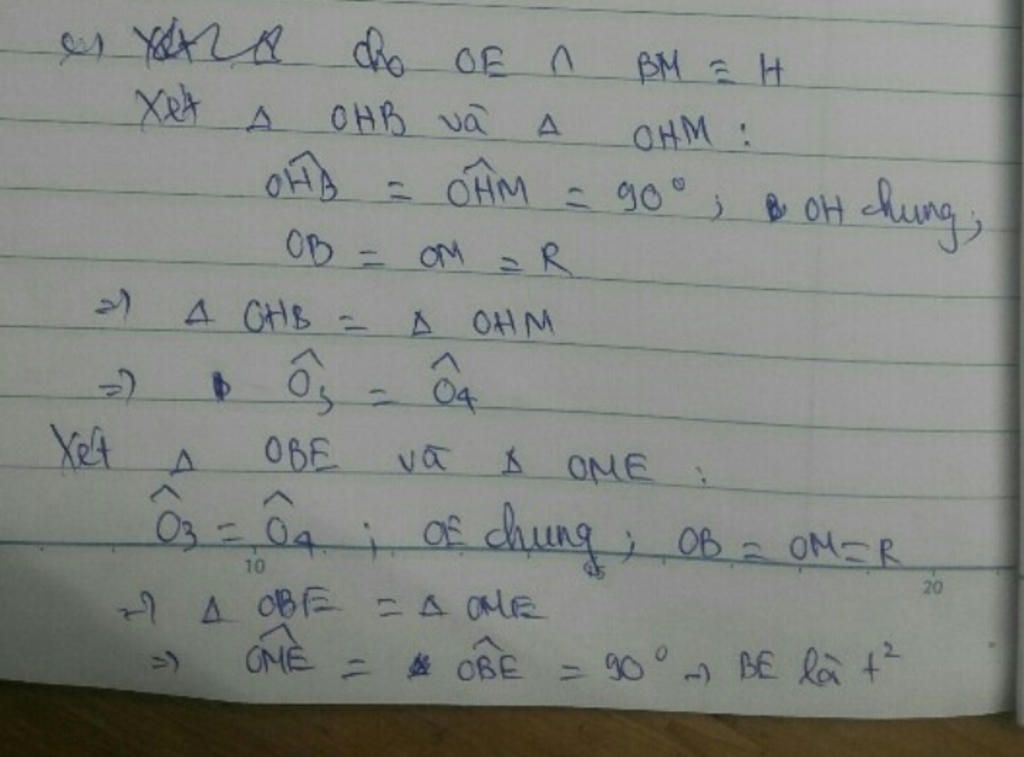 c) cho OE ∩ BM ≡ H
Xét Δ OHB và Δ OHM :
OĤB = OĤM = 90° ; OH chung ;
OB = OM = R
=> Δ OHB = Δ OHM
=> Ô3 = Ô4
Xét Δ OBE và Δ OME :
Ô3 = Ô4 ; OE chung ; OB = OM = R
10 20
=> Δ OBE = Δ OME
=> OM̂E = OB̂E = 90° → BE là t²